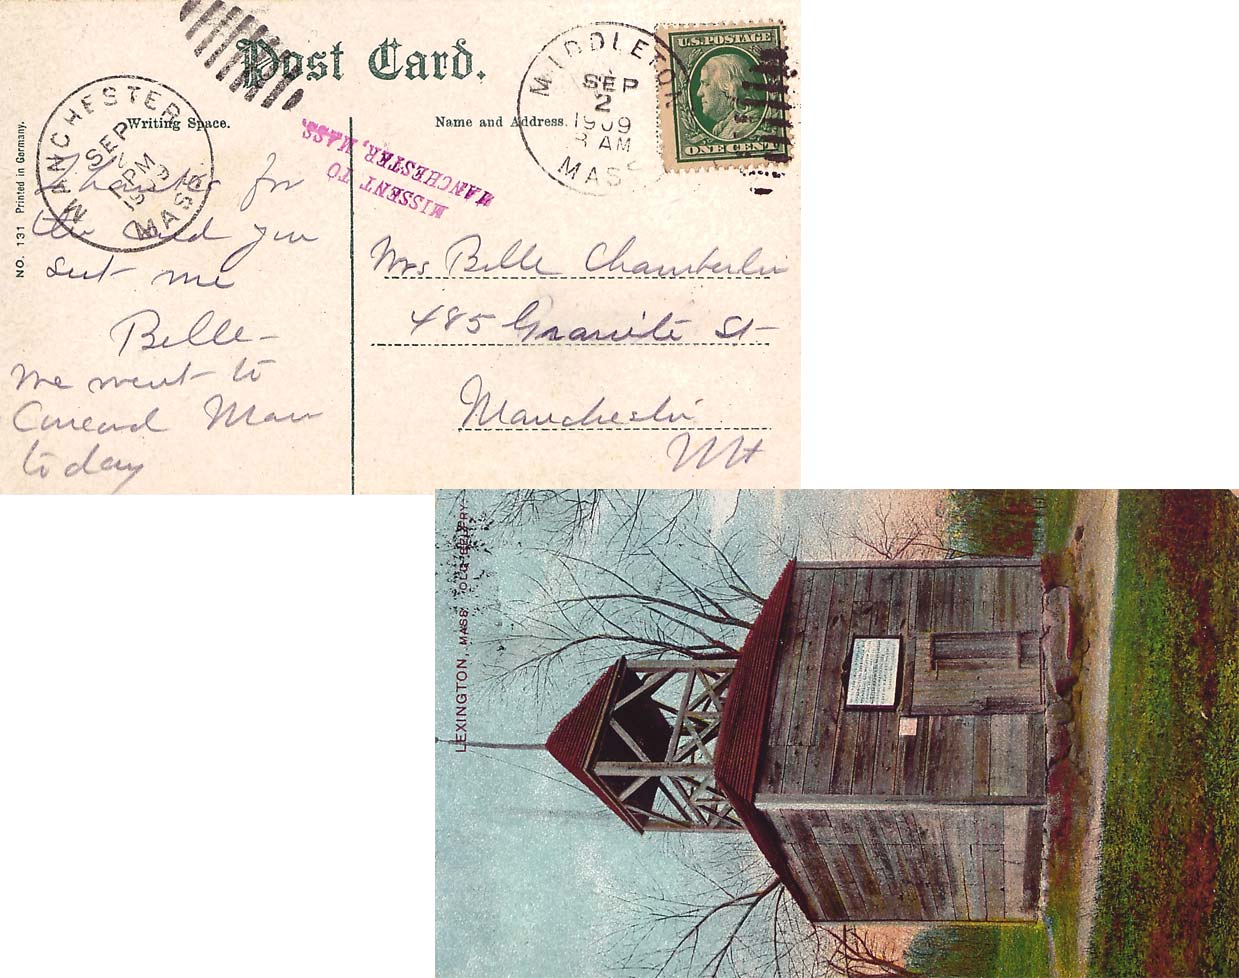 Post Card.
Writing Space.
Name and Address.
NO. 131 Printed in Germany.
MANCHESTER
SEP
PM
MASS
MISSENT TO
MANCHESTER, MASS.
MIDDLETON
SEP
2
1909
8 AM
MASS
U.S. POSTAGE
ONE CENT
Thanks for
the card you
sent me
Belle
We went to
Concord Mass
today
Mrs Belle Chamberlin
485 Granite St
Manchester
LEXINGTON, MASS. OLD BELFRY